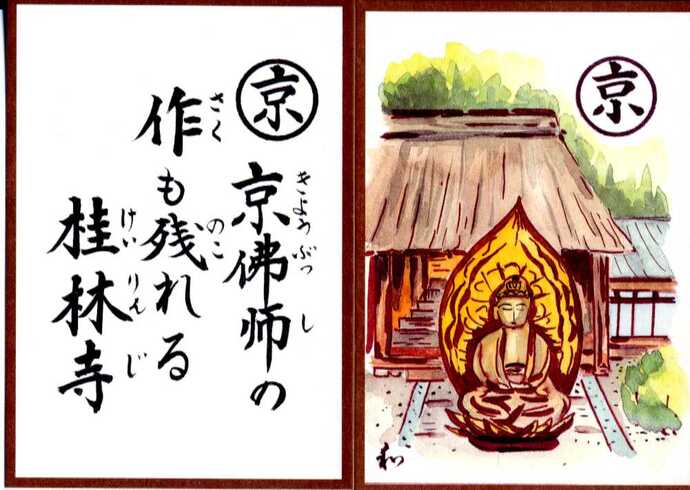 京
京佛師の
きょうぶっし
作も残れる
さくのこ
桂林寺
けいりんじ
京
和